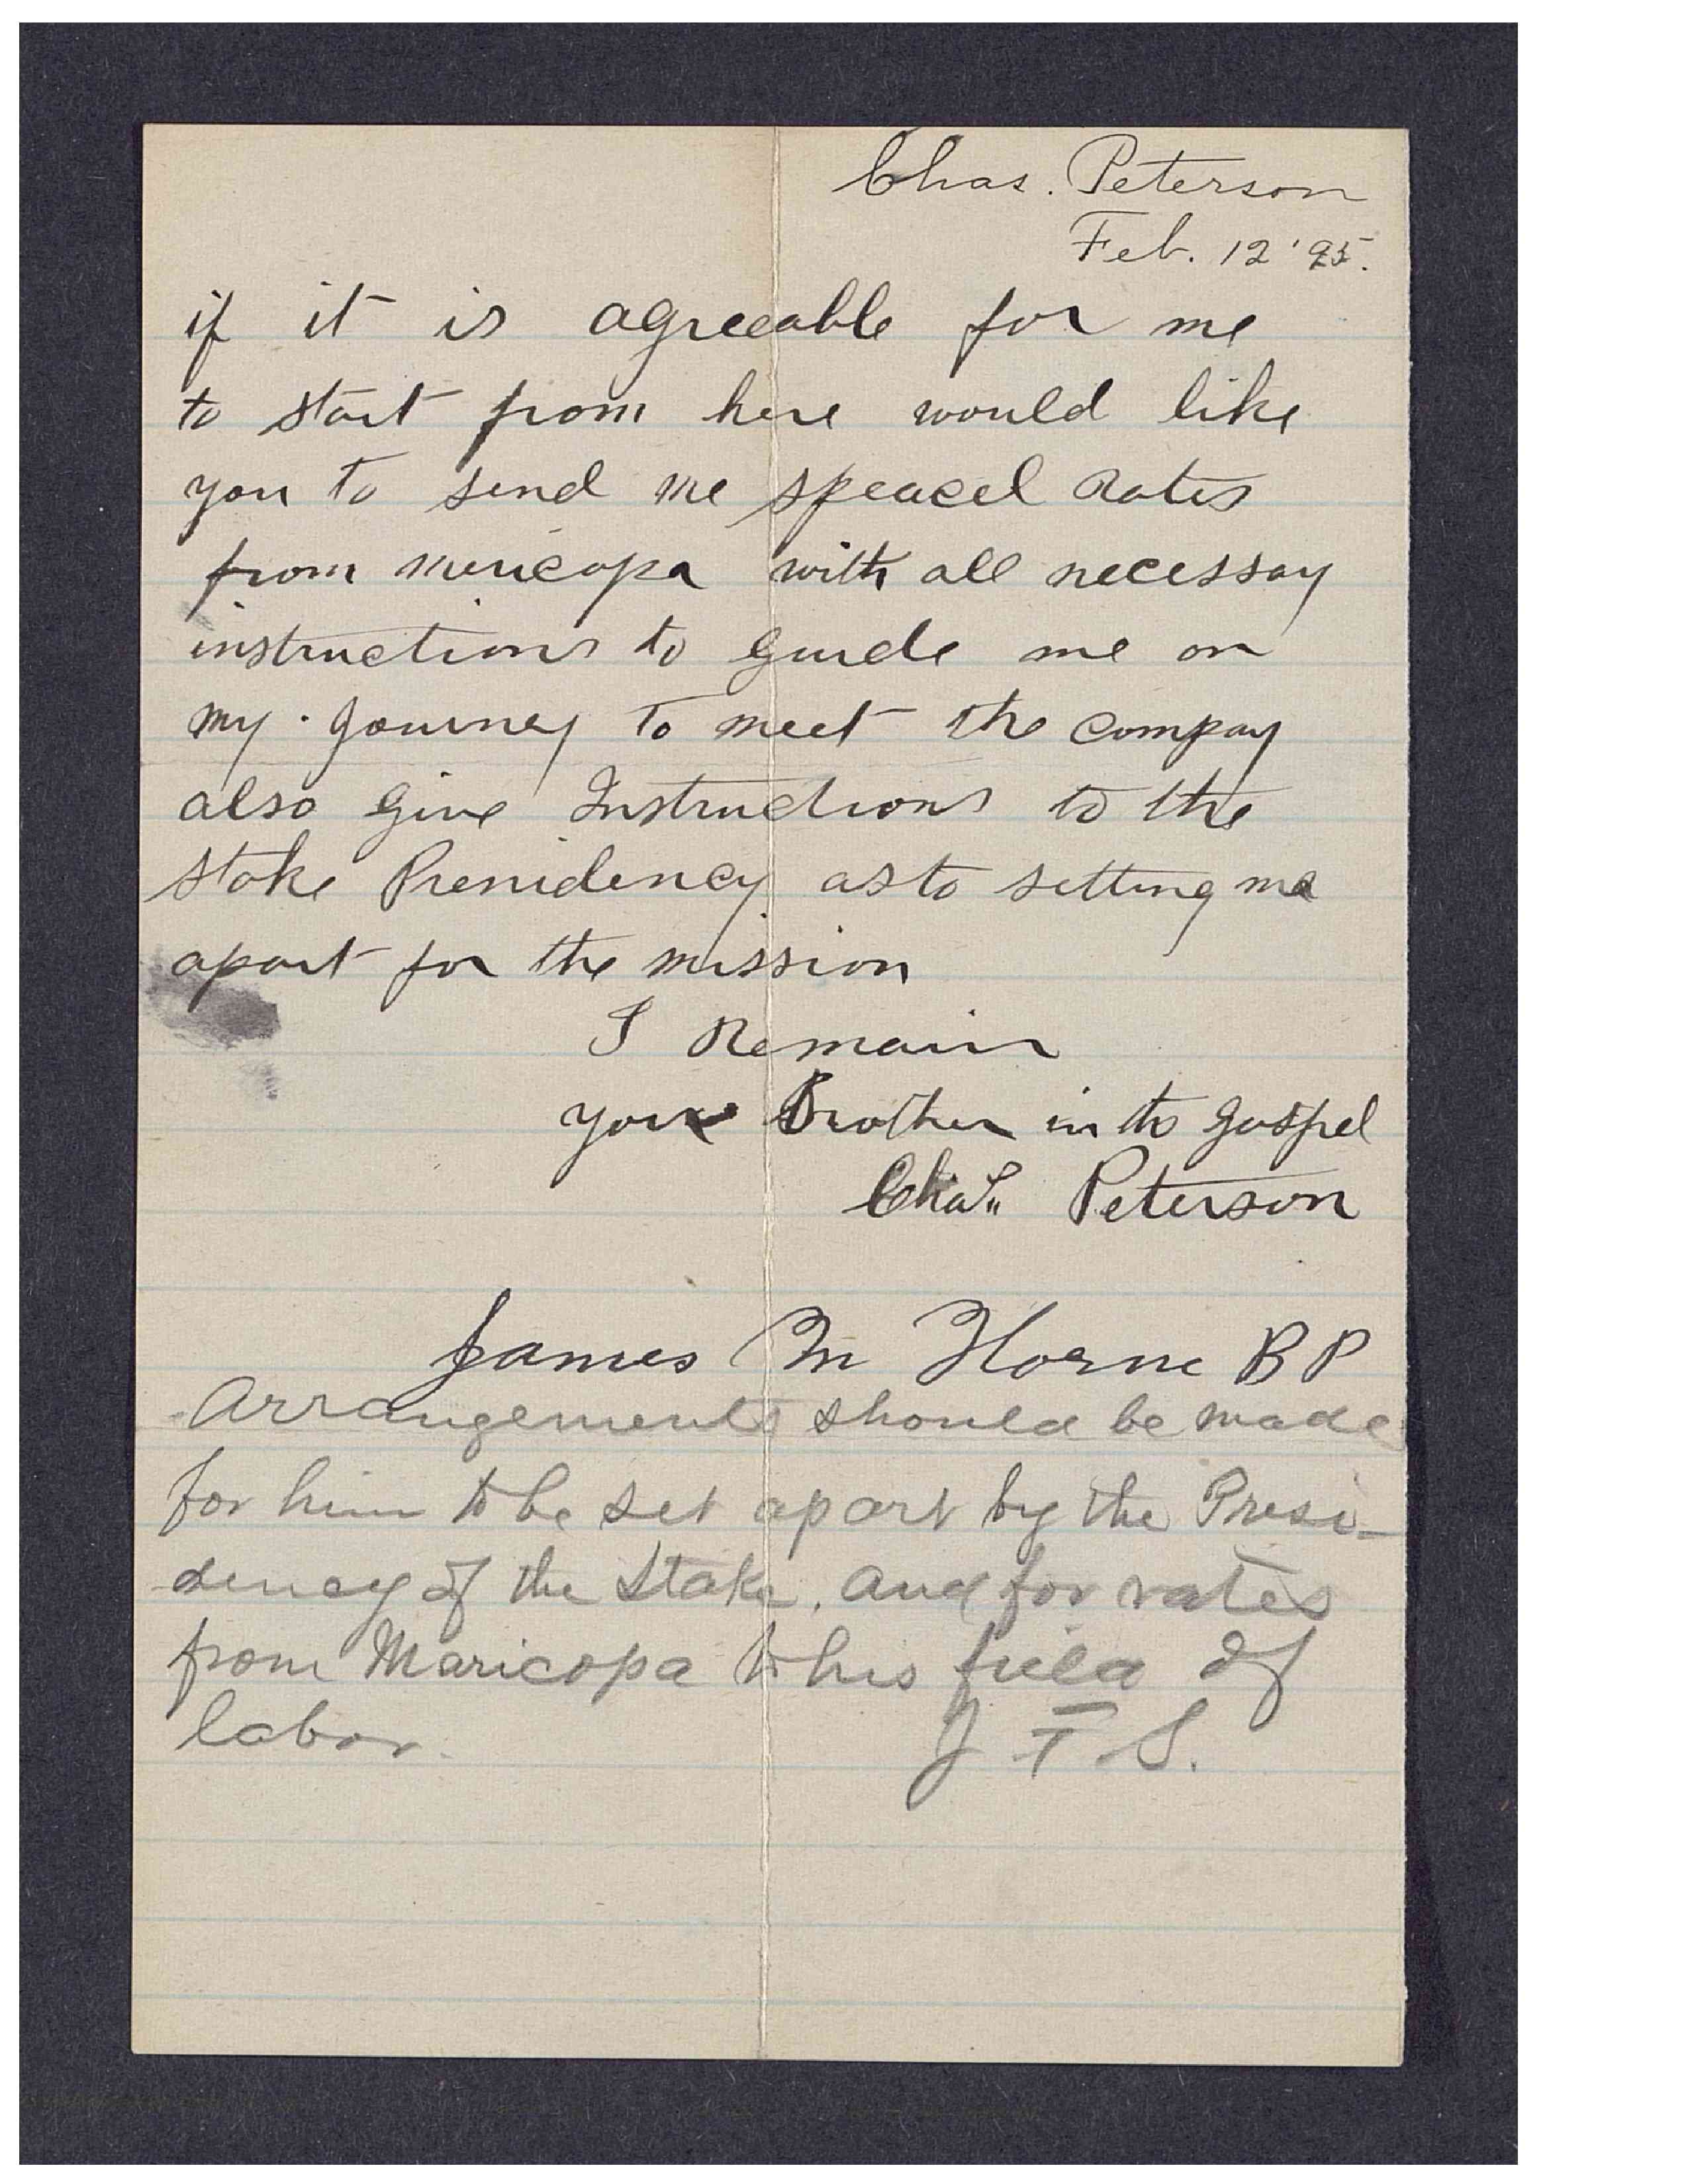 Chas. Peterson
Feb. 12 '95.
if it is agreeable for me
to start from here would like
you to send me speacel Rates
from mericopa with all necessay
instructions to guide me on
my journey to meet the compay
also give Instructions to the
Stake Presidency as to setting me
apart for the mission
I Remain
your Brother in the gospel
Chas Peterson
James M Horne BP
Arrangements should be made
for him to be set apart by the Presi-
dency of the Stake, and for rates
from Maricopa to his field of
labor. J F. S.